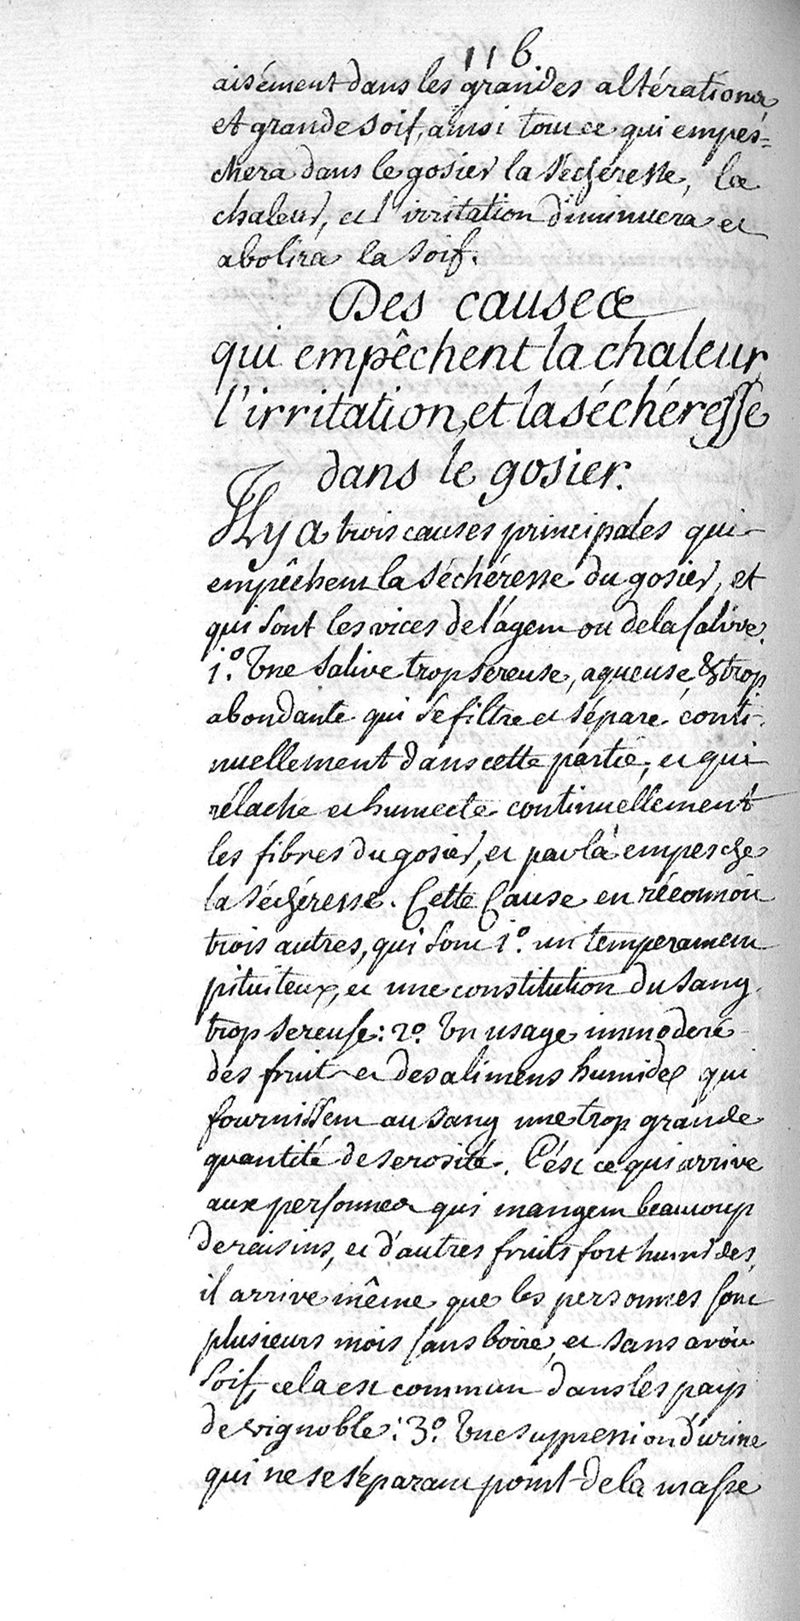 116.
aisément dans les grandes altérations
et grande soif, ainsi tout ce qui empés=
chera dans le gosier la sécheresse, la
chaleur, et l'irritation diminuera et
abolira la soif.
Des causes
qui empêchent la chaleur,
l'irritation, et la séchéresse
dans le gosier.
Il y a trois causes principales qui
empêchent la séchéresse du gosier, et
qui sont les vices de l'agent ou de la salive.
1.° Une salive trop sereuse, aqueuse, & trop
abondante qui se filtre et sépare conti-
nuellement dans cette partie, et qui
rélache et humecte continuellement
les fibres du gosier, et par là empesche
la séchéresse. Cette Cause en réconnoit
trois autres, qui sont 1.° un temperament
pituiteux, et une constitution du sang
trop sereuse: 2.° Un usage immoderé
des fruit et des alimens humides qui
fournissent au sang une trop grande
quantité de serosité. C'ést ce qui arrive
aux personnes qui mangent beaucoup
de raisins, et d'autres fruits fort humides,
il arrive même que les personnes sont
plusieurs mois sans boire, et sans avoir
soif, cela est commun dans les pays
de vignoble: 3.° Une suppression d'urine
qui ne se séparant point de la masse